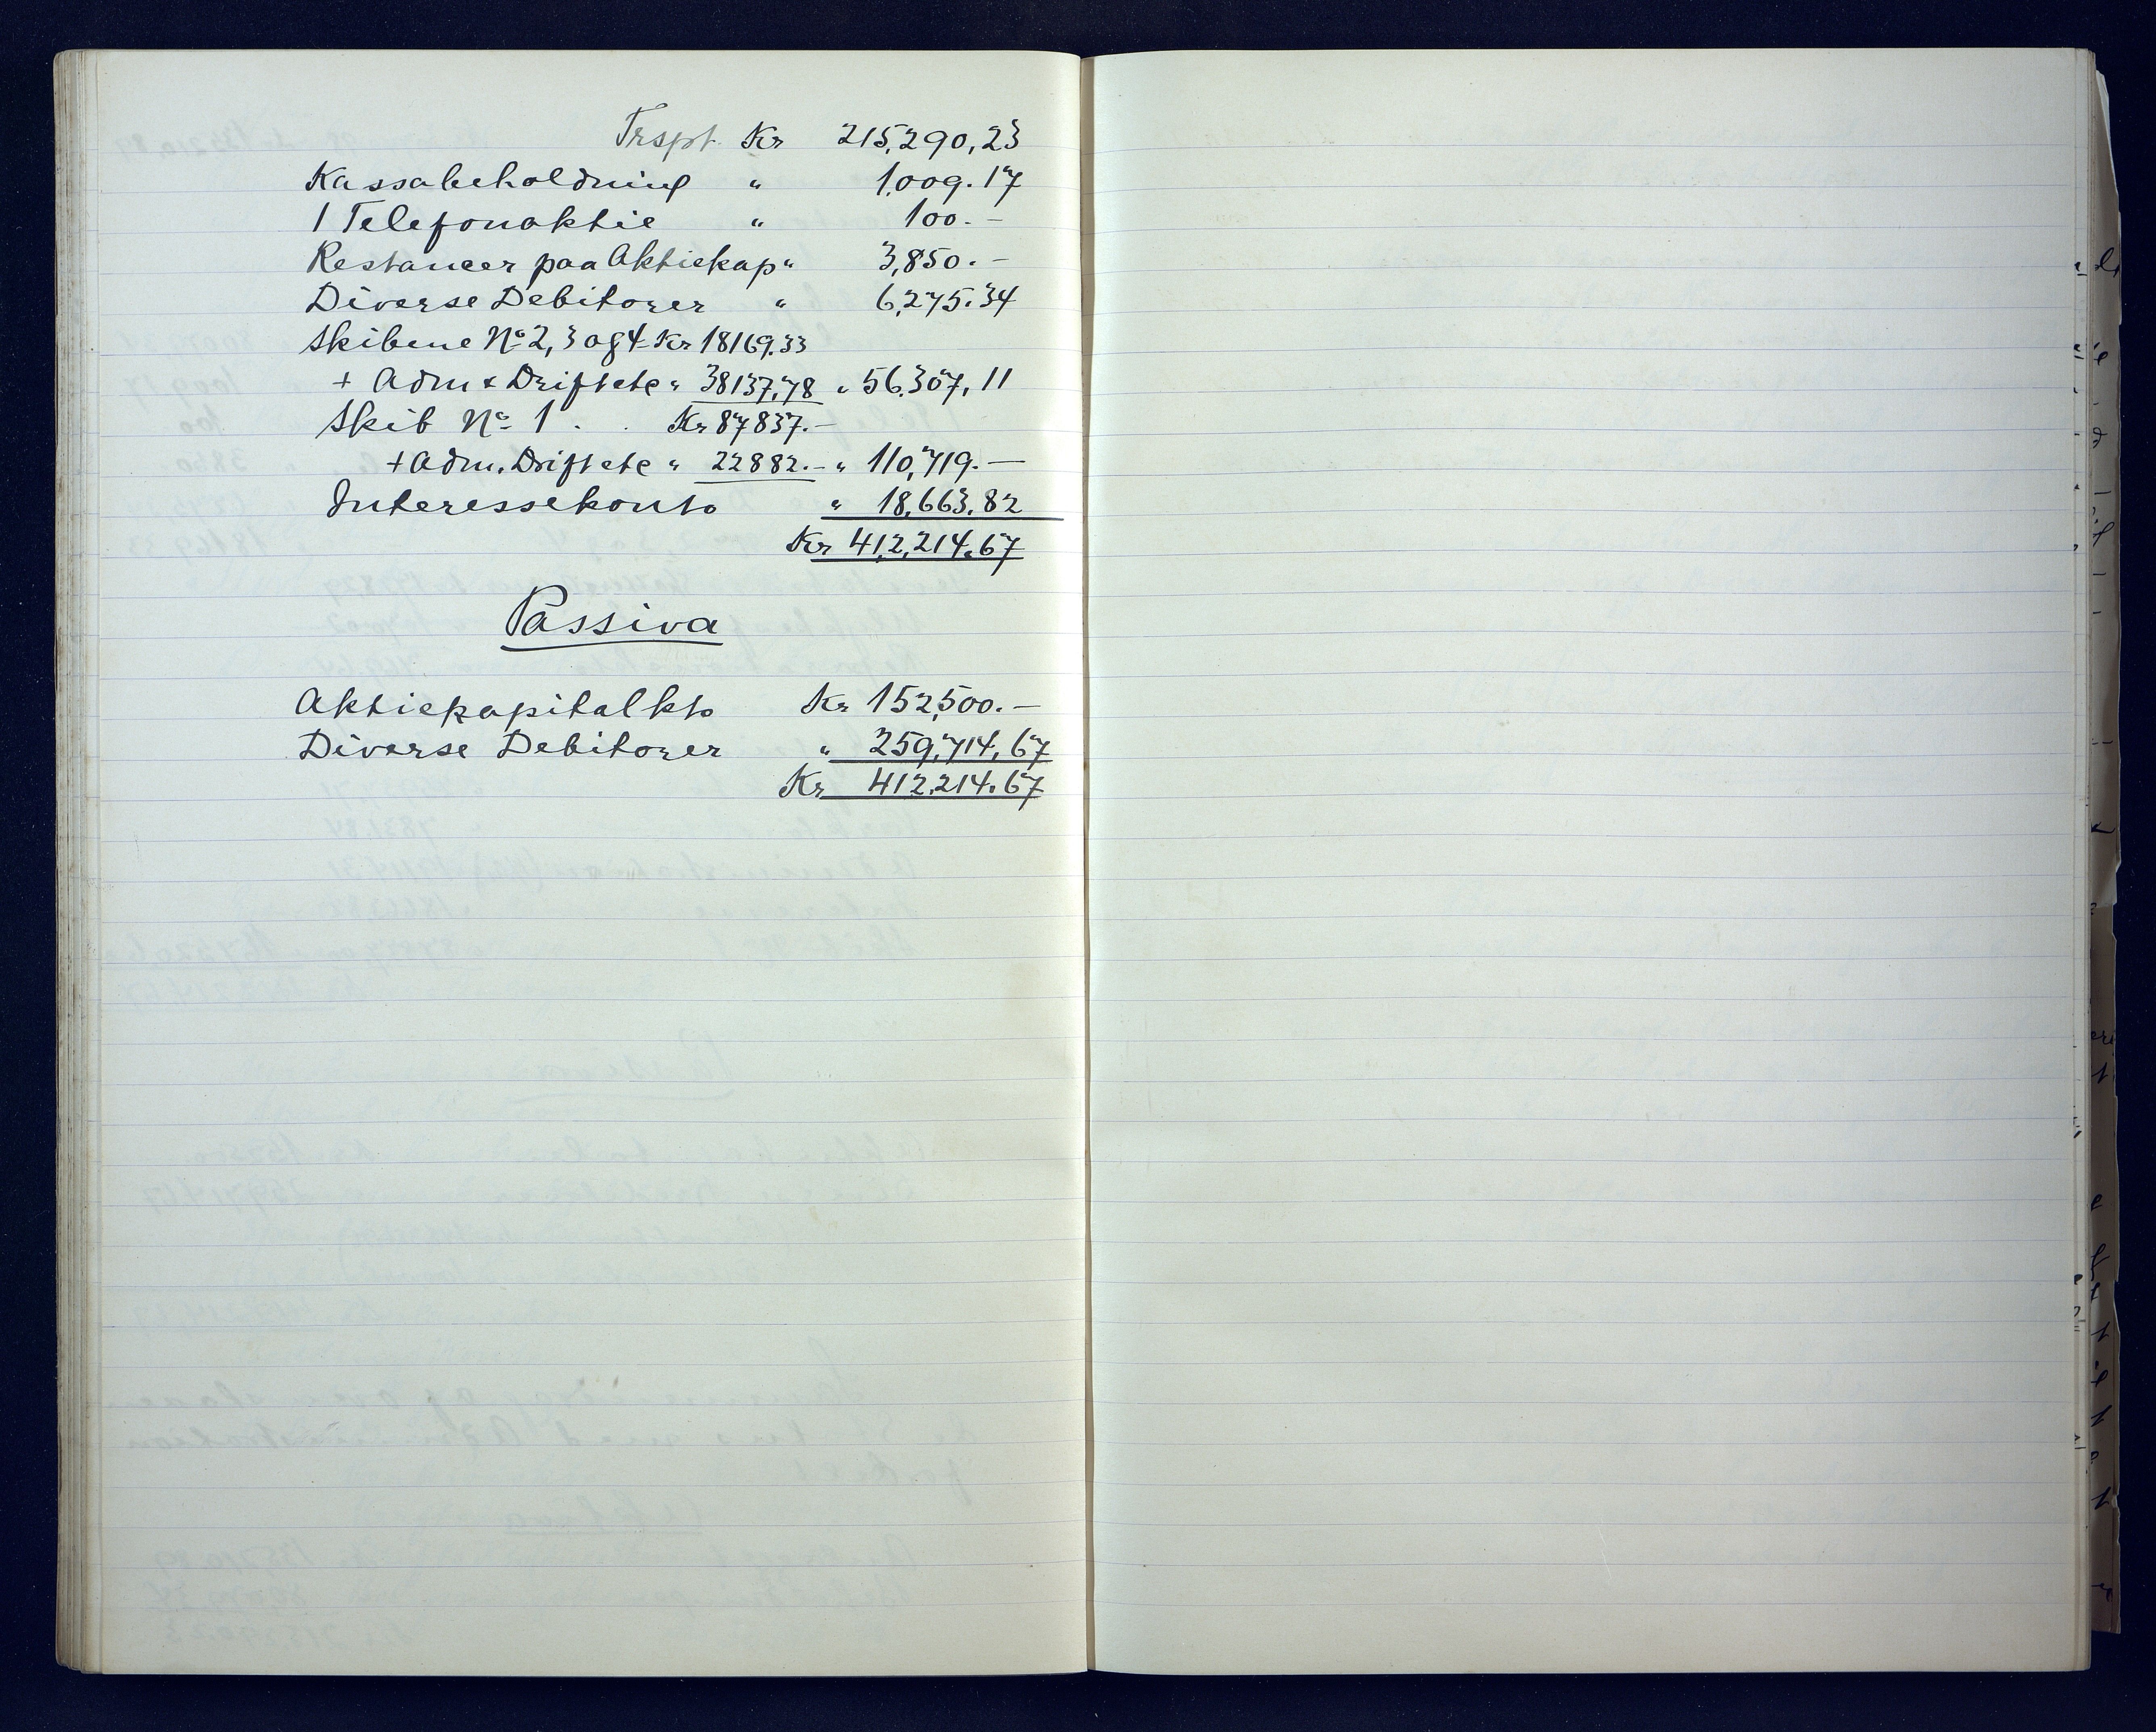 Trspt. Kr 215,290,23
Kassabeholdning " 1,009.17
1 Telefonaktie " 100.-
Restancer paa Aktiekap " 3,850.-
Diverse Debitorer " 6,275.34
Skibene No 2, 3 og 4 Kr 18169.33
+ Adm & Driftete " 38137,78 " 56.307,11
Skib No 1 . . Kr 87837.-
+ Adm. Driftete " 22882.- " 110,719.-
Interessekonto " 18,663.82
Kr 412,214.67
Passiva
Aktiekapitalkto Kr 152,500.-
Diverse Debitorer " 259,714,67
Kr 412.214.67